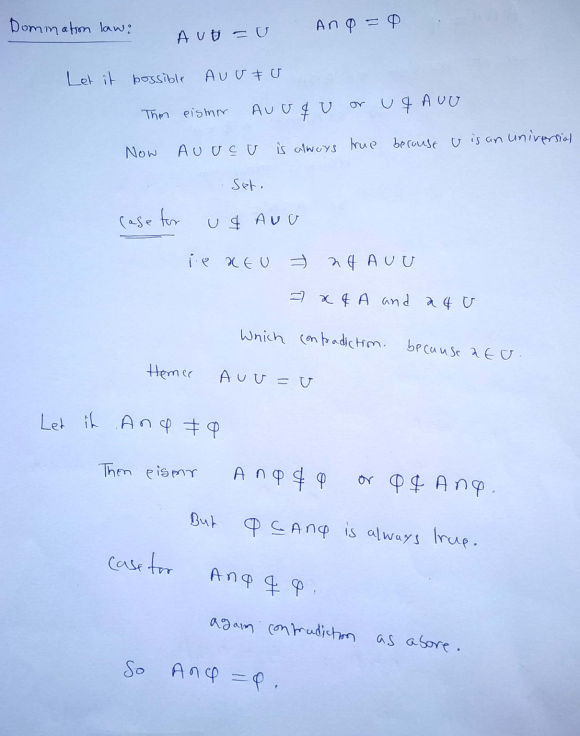 Dommation law: A ∪ U = U A ∩ φ = φ
Let it possible A ∪ U ≠ U
Then eisther A ∪ U ⊄ U or U ⊄ A ∪ U
Now A ∪ U ⊆ U is always true because U is an universial
set.
Case for U ⊄ A ∪ U
i.e x ∈ U ⇒ x ∉ A ∪ U
⇒ x ∉ A and x ∉ U
Which contradiction. because x ∈ U.
Hence A ∪ U = U
Let it A ∩ φ ≠ φ
Then A ∩ φ ⊄ φ or φ ⊄ A ∩ φ.
But φ ⊆ A ∩ φ is always true.
Case for A ∩ φ ⊄ φ.
again contradiction as above.
So A ∩ φ = φ.